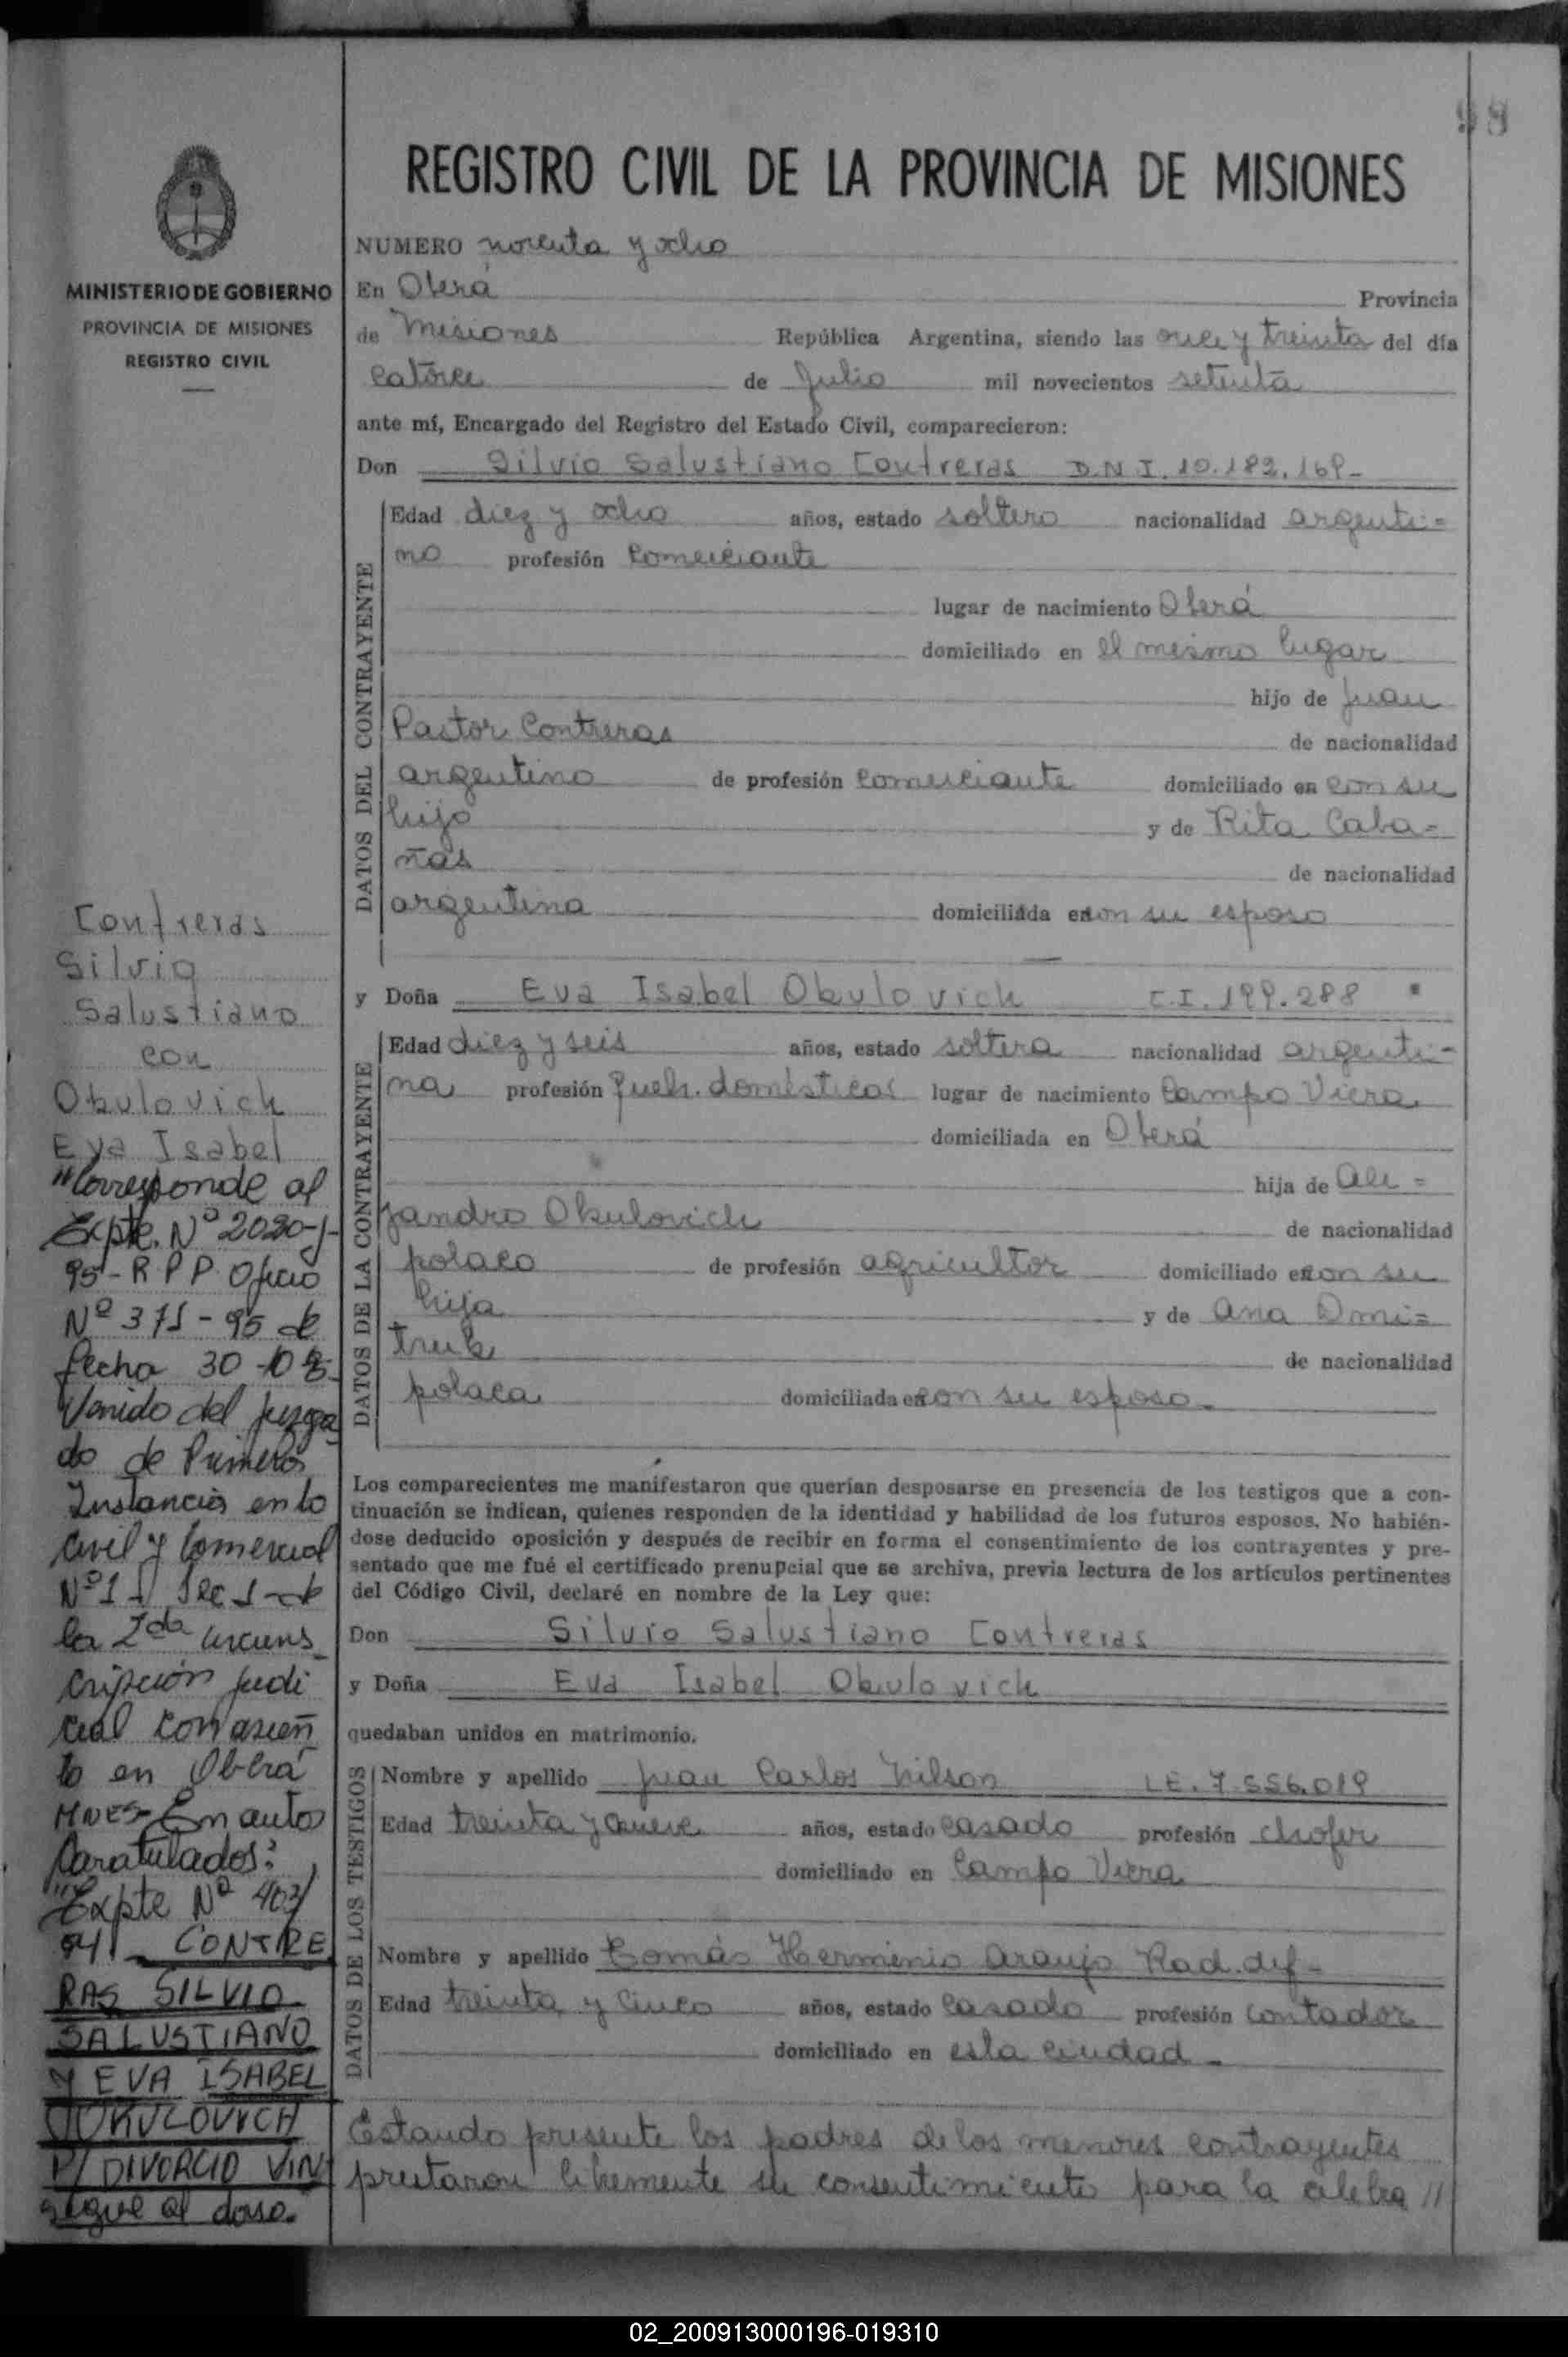 98
REGISTRO CIVIL DE LA PROVINCIA DE MISIONES
MINISTERIO DE GOBIERNO
PROVINCIA DE MISIONES
REGISTRO CIVIL
NUMERO noventa y ocho
En Oberá Provincia
de Misiones República Argentina, siendo las once y treinta del día
catorce de Julio mil novecientos setenta
ante mí, Encargado del Registro del Estado Civil, comparecieron:
Don Silvio Salustiano Contreras D.N.I. 10.182.169-
DATOS DEL CONTRAYENTE
Edad diez y ocho años, estado soltero nacionalidad argenti=
no profesión comerciante
lugar de nacimiento Oberá
domiciliado en el mismo lugar
hijo de Juan
Pastor Contreras de nacionalidad
argentino de profesión comerciante domiciliado en con su
hijo y de Rita Caba=
ñas de nacionalidad
argentina domiciliada en con su esposo
y Doña Eva Isabel Okulovich C.I. 199.288
DATOS DE LA CONTRAYENTE
Edad diez y seis años, estado soltera nacionalidad argenti=
na profesión queh. domésticos lugar de nacimiento Campo Viera
domiciliada en Oberá
hija de Ale=
jandro Okulovich de nacionalidad
polaco de profesión agricultor domiciliado en con su
hija y de Ana Dmi=
truk de nacionalidad
polaca domiciliada en con su esposo-
Los comparecientes me manifestaron que querían desposarse en presencia de los testigos que a con-
tinuación se indican, quienes responden de la identidad y habilidad de los futuros esposos. No habién-
dose deducido oposición y después de recibir en forma el consentimiento de los contrayentes y pre-
sentado que me fué el certificado prenupcial que se archiva, previa lectura de los artículos pertinentes
del Código Civil, declaré en nombre de la Ley que:
Don Silvio Salustiano Contreras
y Doña Eva Isabel Okulovich
quedaban unidos en matrimonio.
DATOS DE LOS TESTIGOS
Nombre y apellido Juan Carlos Nilson L.E. 7.556.019
Edad treinta y nueve años, estado casado profesión chofer
domiciliado en Campo Viera
Nombre y apellido Tomás Herminio Araujo Rad. def-
Edad treinta y cinco años, estado casado profesión contador
domiciliado en esta ciudad-
Estando presente los padres de los menores contrayentes
prestaron libremente su consentimiento para la celebra //
Contreras
Silvio
Salustiano
con
Okulovich
Eva Isabel
"Corresponde al
Expte. Nº 2020-J-
95-R.P.P. Oficio
Nº 371-95 de
fecha 30-10-95-
Venido del Juzga
do de Primera
Instancia en lo
Civil y Comercial
Nº 1- Sec 1- de
la 2da Circuns_
cripción judi
cial con asien
to en Oberá
MNES- En autos
Caratulados:
"Expte Nº 403/
94- CONTRE
RAS SILVIO
SALUSTIANO
Y EVA ISABEL
OKULOVICH
P/ DIVORCIO VIN
Sigue al dorso.
02_200913000196-019310